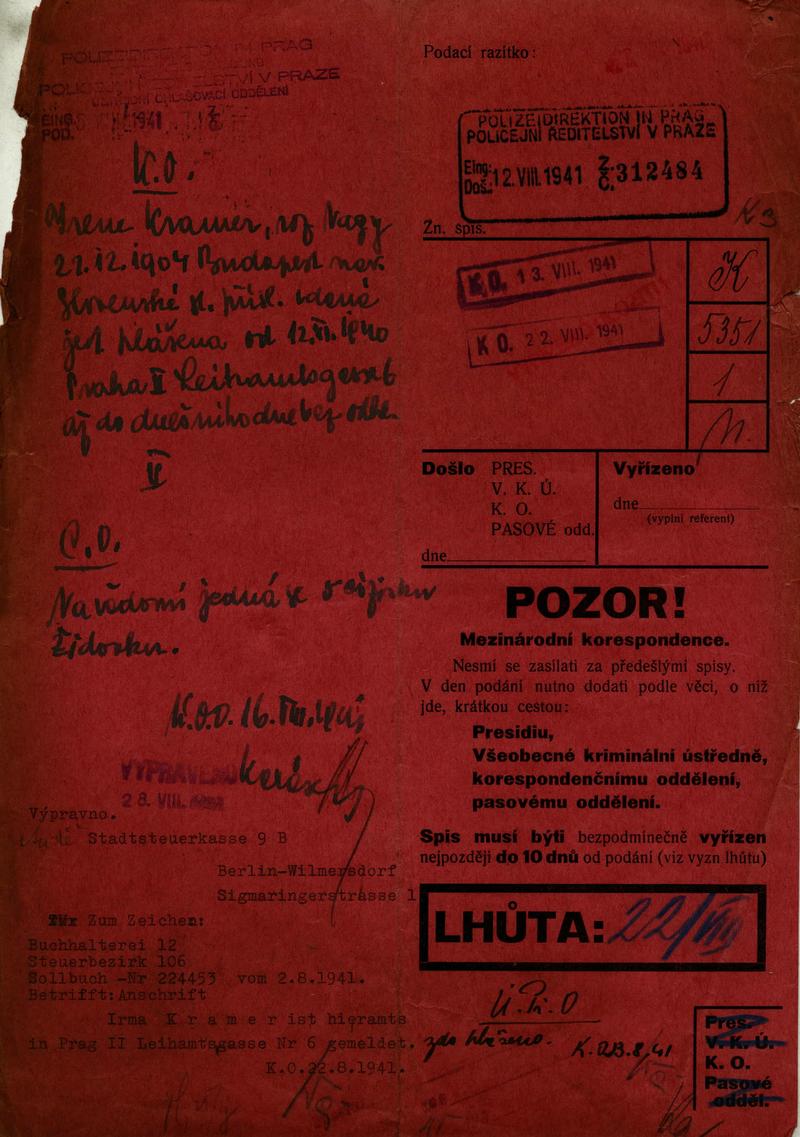 POLIZEIDIREKTION IN PRAG
POLICEJNÍ ŘEDITELSTVÍ V PRAZE
OHLAŠOVACÍ ODDĚLENÍ
EING.
POD. 1941
K.O.
Irene Kramer, roz Nagy
21.12.1904 Budapest nar.
Slovenské st. přísl. vdaná
jest hlášena od 1940
Praha II Leihamtsgasse 6
až do dnešního dne bez odhl.
II
C.O.
Na vědomí jedná se o
Židovku.
K.O.O. 16.VIII.1941
VYPRAVENO
28. VIII. 1941
Výpravno.
Stadtsteuerkasse 9 B
Berlin-Wilmersdorf
Sigmaringerstrasse 1
Zum Zeichen:
Buchhalterei 12
Steuerbezirk 106
Sollbuch -Nr 224453 vom 2.8.1941.
Betrifft: Anschrift
Irma K r a m e r ist hieramts
in Prag II Leihamtsgasse Nr 6 gemeldet.
K.O.22.8.1941.
Podací razítko:
POLIZEIDIREKTION IN PRAG
POLICEJNÍ ŘEDITELSTVÍ V PRAZE
Eing.: Doš.: 12.VIII.1941 Z. Č. 312484
K 3
Zn. spis.
K.O. 13. VIII. 1941
K O. 22. VIII. 1941
K
5351
1
Došlo PRES.
V. K. Ú.
K. O.
PASOVÉ odd.
dne
Vyřízeno
dne
(vyplní referent)
POZOR!
Mezinárodní korespondence.
Nesmí se zasílati za předešlými spisy.
V den podání nutno dodati podle věci, o níž
jde, krátkou cestou:
Presidiu,
Všeobecné kriminální ústředně,
korespondenčnímu oddělení,
pasovému oddělení.
Spis musí býti bezpodmínečně vyřízen
nejpozději do 10 dnů od podání (viz vyzn lhůtu)
LHŮTA: 22/VIII
zde hlášeno.
Pres.
V. K. Ú.
K. O.
Pasové
odděl.